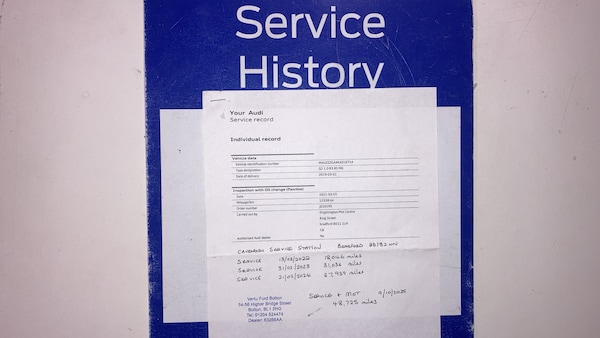 Service
History
Your Audi
Service record
Individual record
Vehicle data
Vehicle identification number
Type designation
Date of delivery
Inspection with Oil change (flexible)
Date
Mileage/km
Order number
Carried out by
King Street
Authorised Audi dealer
CAVENDISH SERVICE STATION
SERVICE 13/03/2022 miles
SERVICE 31/03/2023 31,036 miles
SERVICE 21/03/2024 miles
SERVICE + MOT 9/10/2025
48,725 miles
Vertu Ford Bolton
54-56 Higher Bridge Street
Bolton, BL1 2HG
Tel: 01204 524474
Dealer: 63288AA